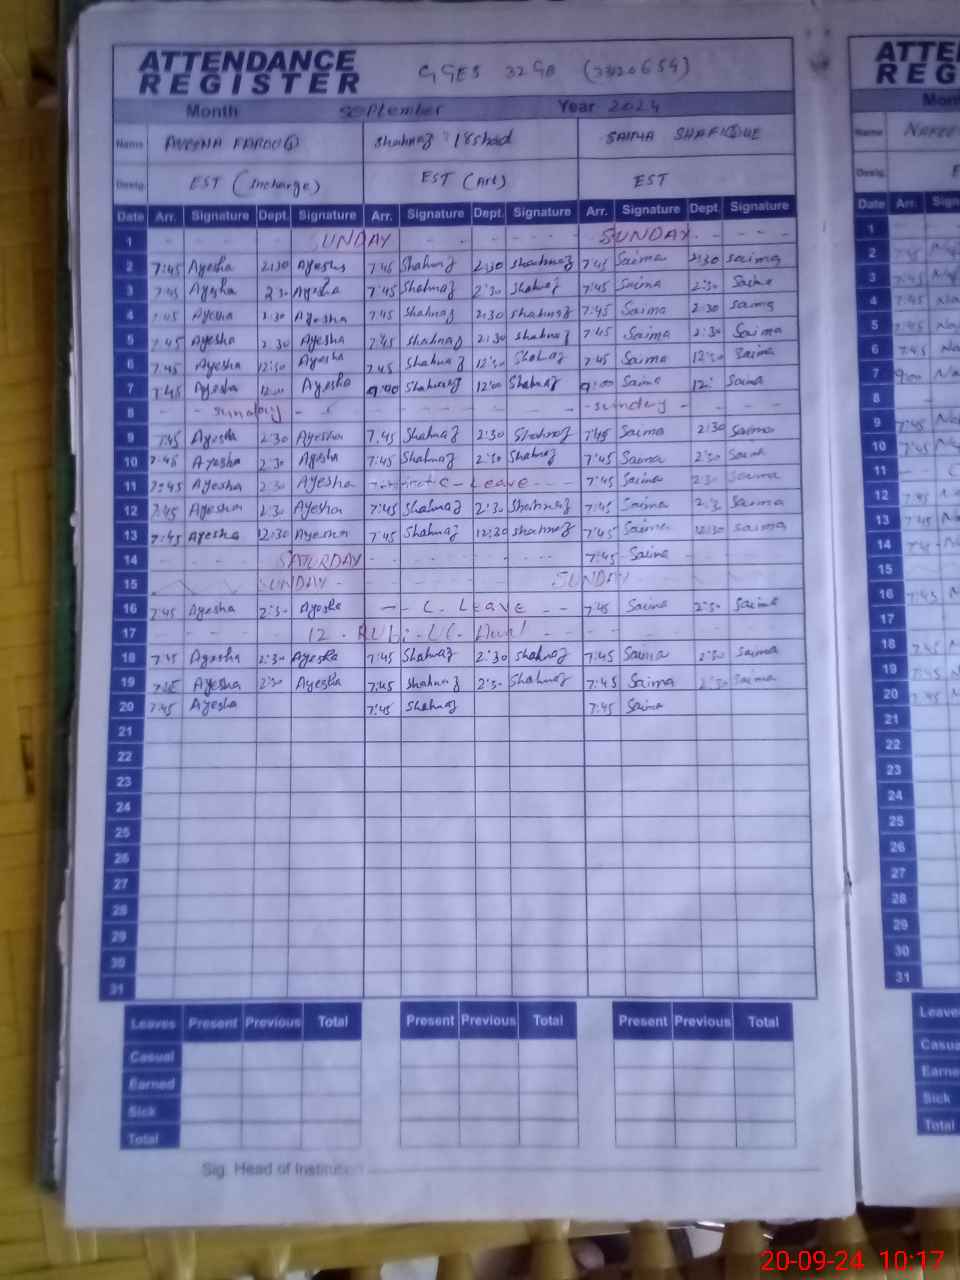 ATTENDANCE REGISTER
GGES 32 GB
Month September Year 2024
Name Shahnaz Irshad SAIMA SHAFIQUE
Desig. EST (Incharge) EST (Art) EST
Date Arr. Signature Dept. Signature Arr. Signature Dept. Signature Arr. Signature Dept. Signature
1 SUNDAY SUNDAY
2 7:45 Ayesha 2:30 Ayesha 7:45 Shahnaz 2:30 Shahnaz 7:45 Saima 2:30 Saima
3 7:45 Ayesha 2:30 Ayesha 7:45 Shahnaz 2:30 Shahnaz 7:45 Saima 2:30 Saima
4 7:45 Ayesha 2:30 Ayesha 7:45 Shahnaz 2:30 Shahnaz 7:45 Saima 2:30 Saima
5 7:45 Ayesha 2:30 Ayesha 7:45 Shahnaz 2:30 Shahnaz 7:45 Saima 2:30 Saima
6 7:45 Ayesha 12:30 Ayesha 7:45 Shahnaz 12:30 Shahnaz 7:45 Saima 12:30 Saima
7 7:45 Ayesha 12:00 Ayesha 9:00 Shahnaz 12:00 Shahnaz 9:00 Saima 12: Saima
8 Sunday Sunday
9 7:45 Ayesha 2:30 Ayesha 7:45 Shahnaz 2:30 Shahnaz 7:45 Saima 2:30 Saima
10 7:45 Ayesha 2:30 Ayesha 7:45 Shahnaz 2:30 Shahnaz 7:45 Saima 2:30 Saima
11 7:45 Ayesha 2:30 Ayesha C-Leave 7:45 Saima 2:30 Saima
12 7:45 Ayesha 2:30 Ayesha 7:45 Shahnaz 2:30 Shahnaz 7:45 Saima 2:30 Saima
13 7:45 Ayesha 12:30 Ayesha 7:45 Shahnaz 12:30 Shahnaz 7:45 Saima 12:30 Saima
14 SATURDAY 7:45 Saima
15 SUNDAY SUNDAY
16 7:45 Ayesha 2:30 Ayesha C. Leave 7:45 Saima 2:30 Saima
17 12 Rubi-ul-Awal
18 7:45 Ayesha 2:30 Ayesha 7:45 Shahnaz 2:30 Shahnaz 7:45 Saima 2:30 Saima
19 7:45 Ayesha 2:30 Ayesha 7:45 Shahnaz 2:30 Shahnaz 7:45 Saima 2:30 Saima
20 7:45 Ayesha 7:45 Shahnaz 7:45 Saima
21
22
23
24
25
26
27
28
29
30
31
Leaves Present Previous Total Present Previous Total Present Previous Total
Casual
Earned
Sick
Total
Sig. Head of Institution
20-09-24 10:17